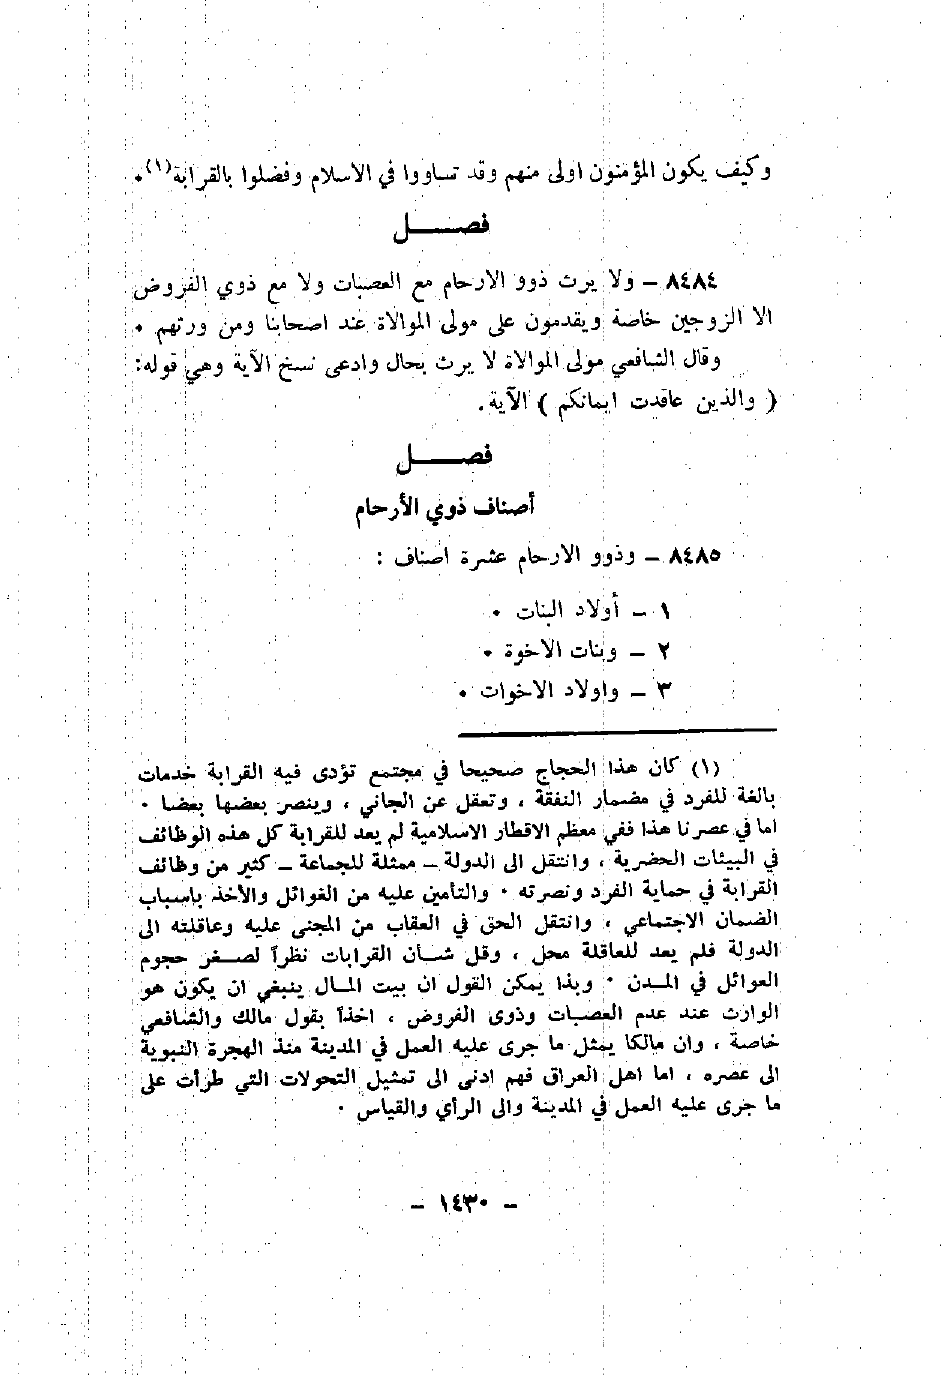 وكيف يكون المؤمنون اولى منهم وقد تساووا في الاسلام وفضلوا بالقرابة(١).
فصــــل
٨٤٨٤ – ولا يرث ذوو الارحام مع العصبات ولا مع ذوي الفروض
الا الزوجين خاصة ويقدمون على مولى الموالاة عند اصحابنا ومن ورثهم .
وقال الشافعي مولى الموالاة لا يرث بحال وادعى نسخ الآية وهي قوله:
( والذين عاقدت ايمانكم ) الآية.
فصــــل
أصناف ذوي الأرحام
٨٤٨٥ – وذوو الارحام عشرة اصناف :
١ – أولاد البنات .
٢ – وبنات الاخوة .
٣ – واولاد الاخوات .
(١) كان هذا الحجاج صحيحا في مجتمع تؤدى فيه القرابة خدمات
بالغة للفرد في مضمار النفقة ، وتعقل عن الجاني ، وينصر بعضها بعضا .
اما في عصرنا هذا ففي معظم الاقطار الاسلامية لم يعد للقرابة كل هذه الوظائف
في البيئات الحضرية ، وانتقل الى الدولة – ممثلة للجماعة – كثير من وظائف
القرابة في حماية الفرد ونصرته . والتأمين عليه من الغوائل والأخذ باسباب
الضمان الاجتماعي ، وانتقل الحق في العقاب من المجنى عليه وعاقلته الى
الدولة فلم يعد للعاقلة محل ، وقل شــأن القرابات نظرآ لصــغر حجوم
العوائل في المــدن . وبذا يمكن القول ان بيت المــال ينبغي ان يكون هو
الوارث عند عدم العصبات وذوى الفروض ، اخذآ بقول مالك والشافعي
خاصة ، وان مالكا يمثل ما جرى عليه العمل في المدينة منذ الهجرة النبوية
الى عصره ، اما اهل العراق فهم ادنى الى تمثيل التحولات التي طرأت على
ما جرى عليه العمل في المدينة والى الرأي والقياس .
– ١٤٣٠ –